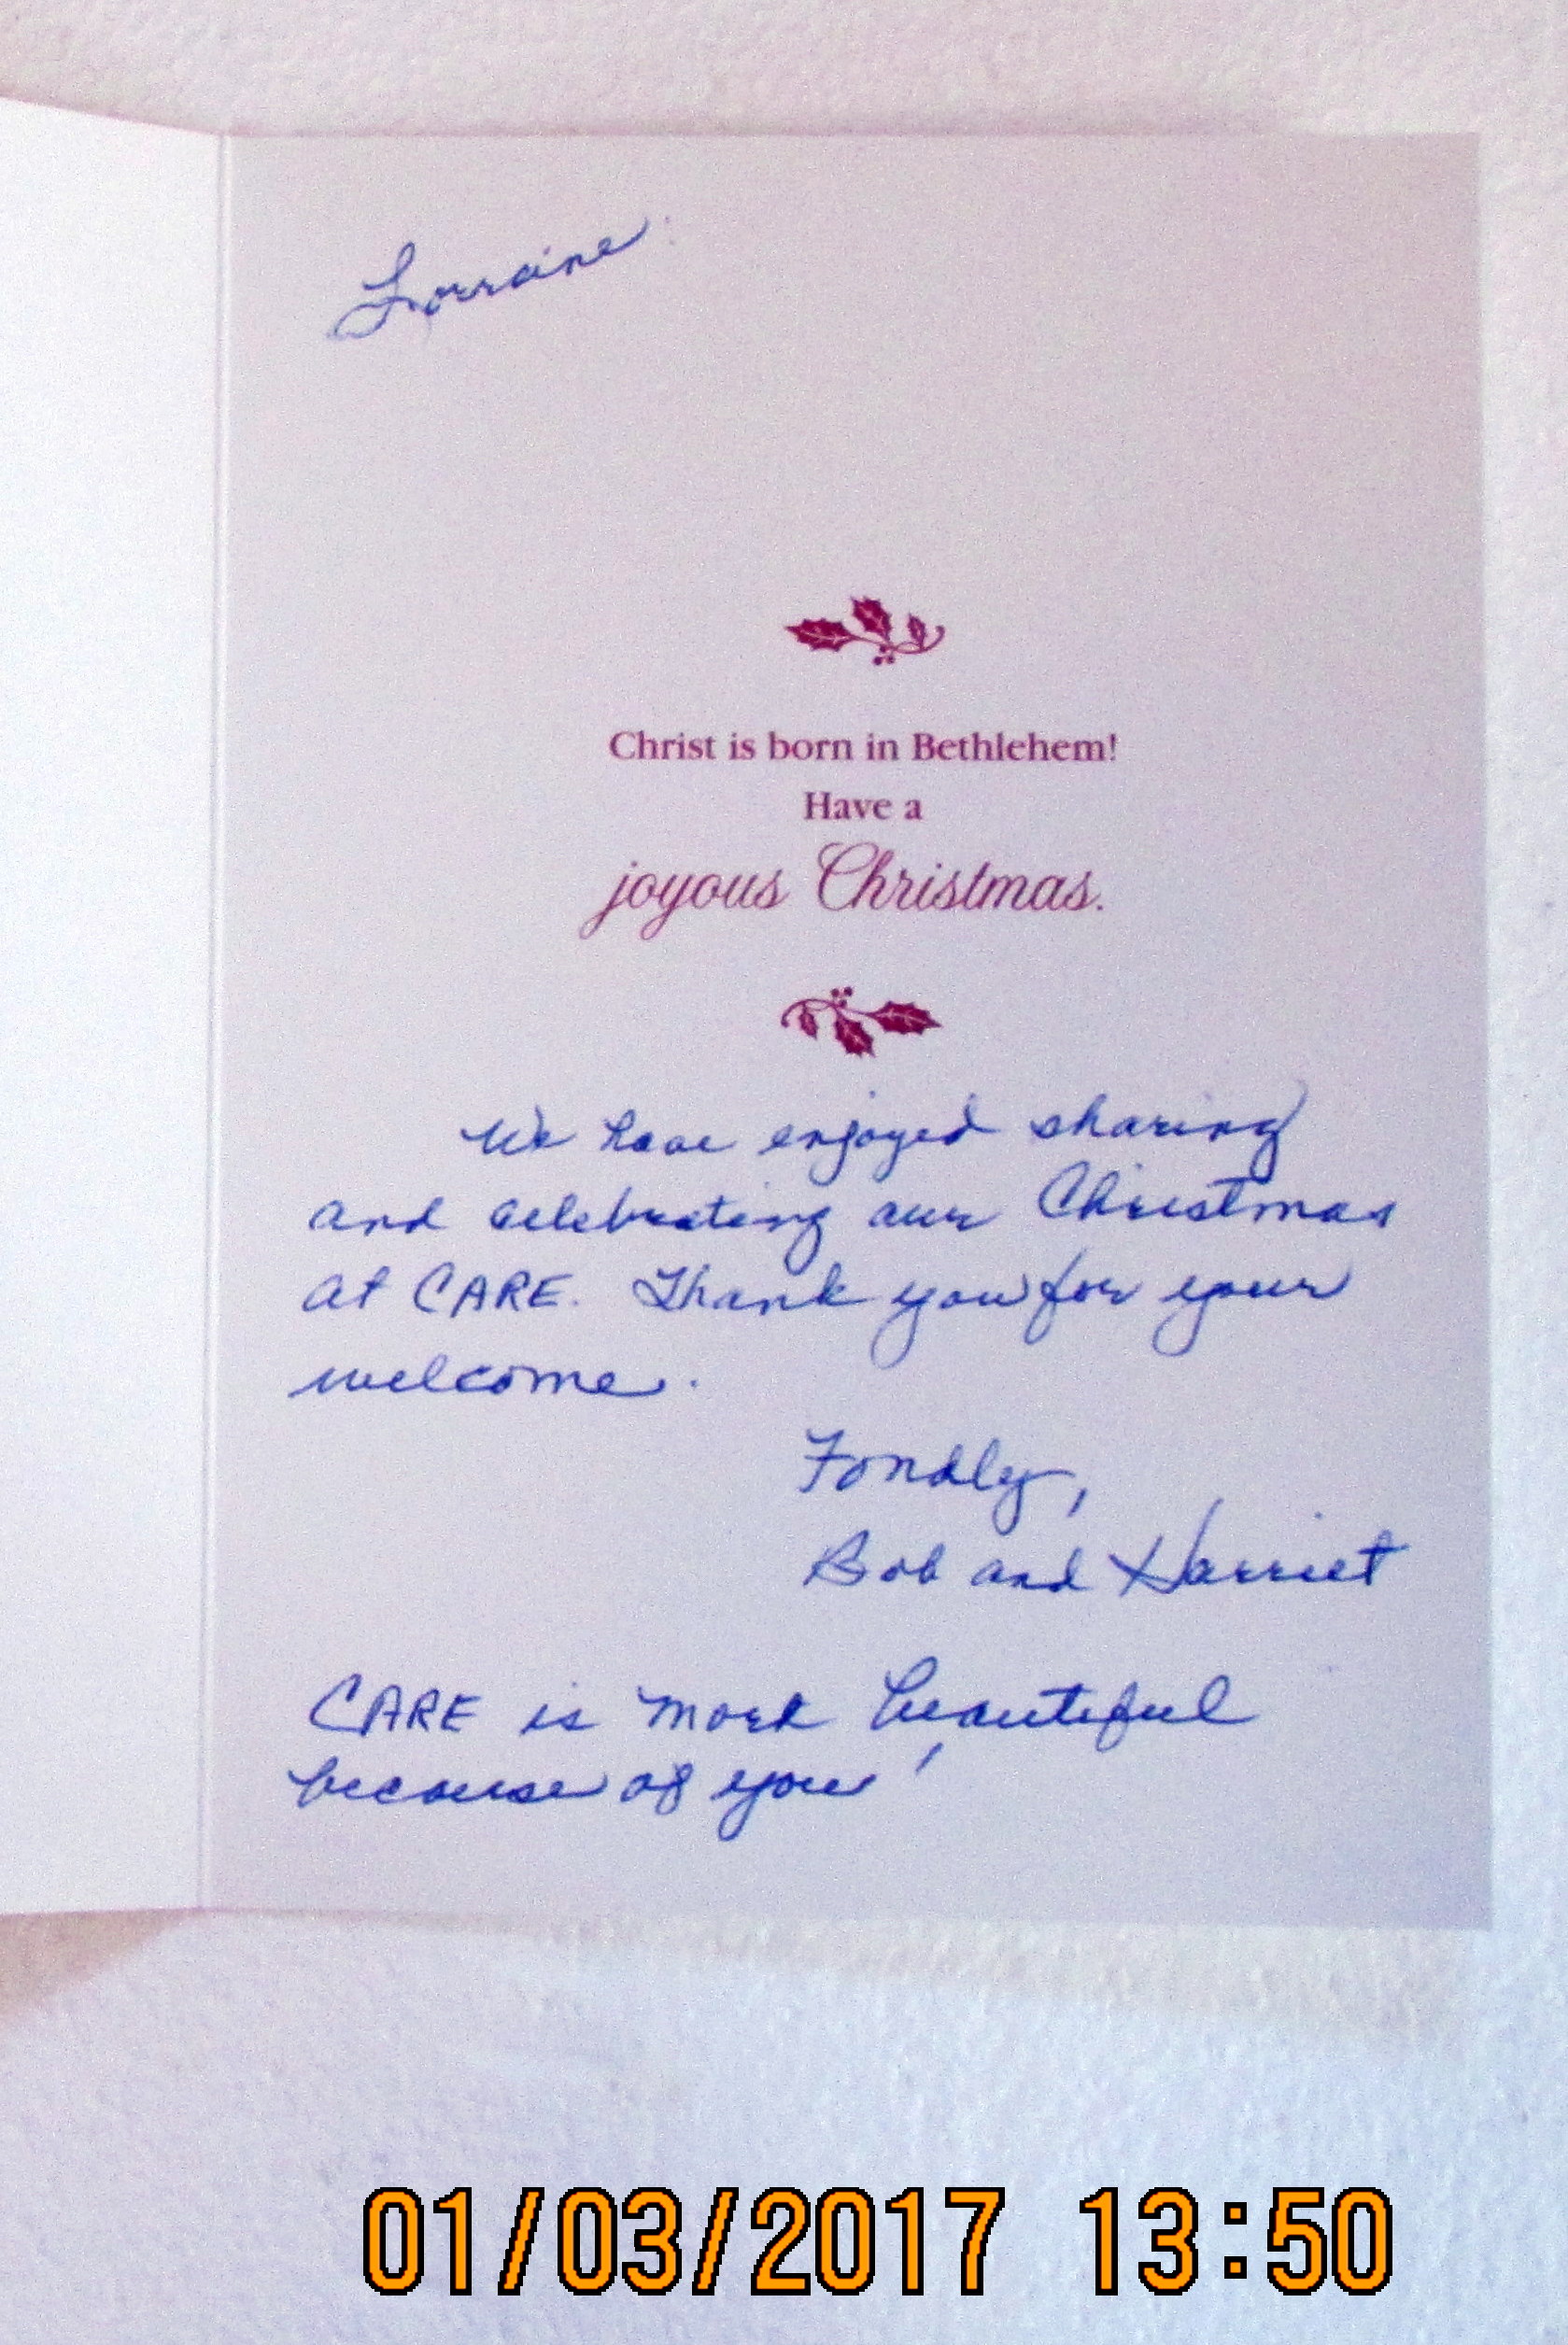 Lorraine:
Christ is born in Bethlehem!
Have a
joyous Christmas.
We have enjoyed sharing
and celebrating our Christmas
at CARE. Thank you for your
welcome.
Fondly,
Bob and Harriet
CARE is more beautiful
because of you!
01/03/2017 13:50